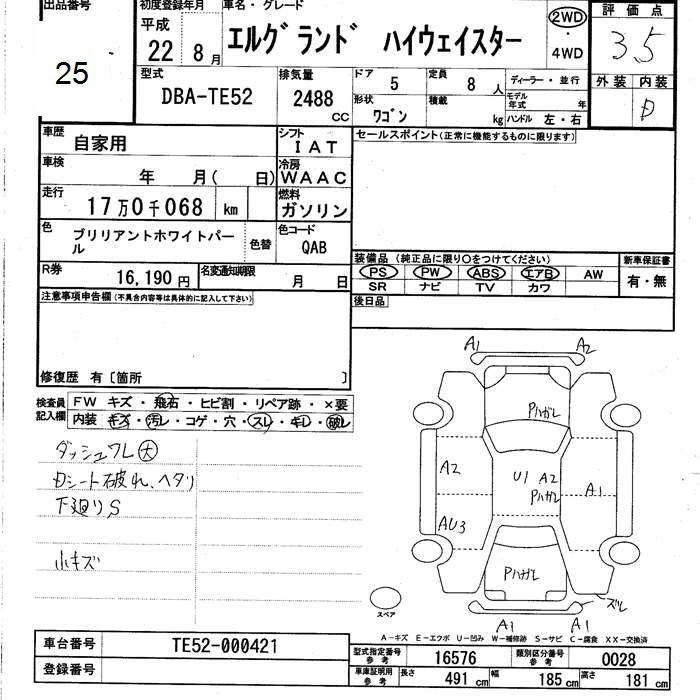 出品番号
25
初度登録年月
平成
22 8 月
車名・グレード
エルグランド ハイウェイスター
2WD
・
4WD
評価点
3.5
外装 内装
D
型式
DBA-TE52
排気量
2488 CC
ドア
5
定員
8 人
形状
ワゴン
積載
kg
ディーラー・並行
モデル
年式 年
ハンドル 左・右
車歴
自家用
シフト
IAT
車検
年 月( 日)
冷房
WAAC
走行
17万0千068 km
燃料
ガソリン
色
ブリリアントホワイトパー
ル
色替
色コード
QAB
R券
16,190 円
名変通知期限
月 日
セールスポイント(正常に機能するものに限ります)
装備品 (純正品に限り○をつけてください)
PS PW ABS エアB AW
SR ナビ TV カワ
新車保証書
有・無
後日品
注意事項申告欄(不具合内容等は具体的に記入して下さい)
修復歴 有〔箇所 〕
検査員
記入欄
FW キズ・飛石・ヒビ割・リペア跡・×要
内装 キズ・汚レ・コゲ・穴・スレ・キレ・破レ
ダッシュワレ大
Dシート破れ、ヘタリ
下廻りS
小キズ
A1 A2
Pハガレ
A2
U1 A2
Pハガレ
A1
AU3
Pハガレ
ズレ
A1 A1
スペア
A-キズ E-エクボ U-凹み W-補修跡 S-サビ C-腐食 XX-交換済
車台番号
TE52-000421
登録番号
型式指定番号
参考
16576
類別区分番号
参考
0028
車体証明用
参考
長さ
491 cm
幅
185 cm
高さ
181 cm